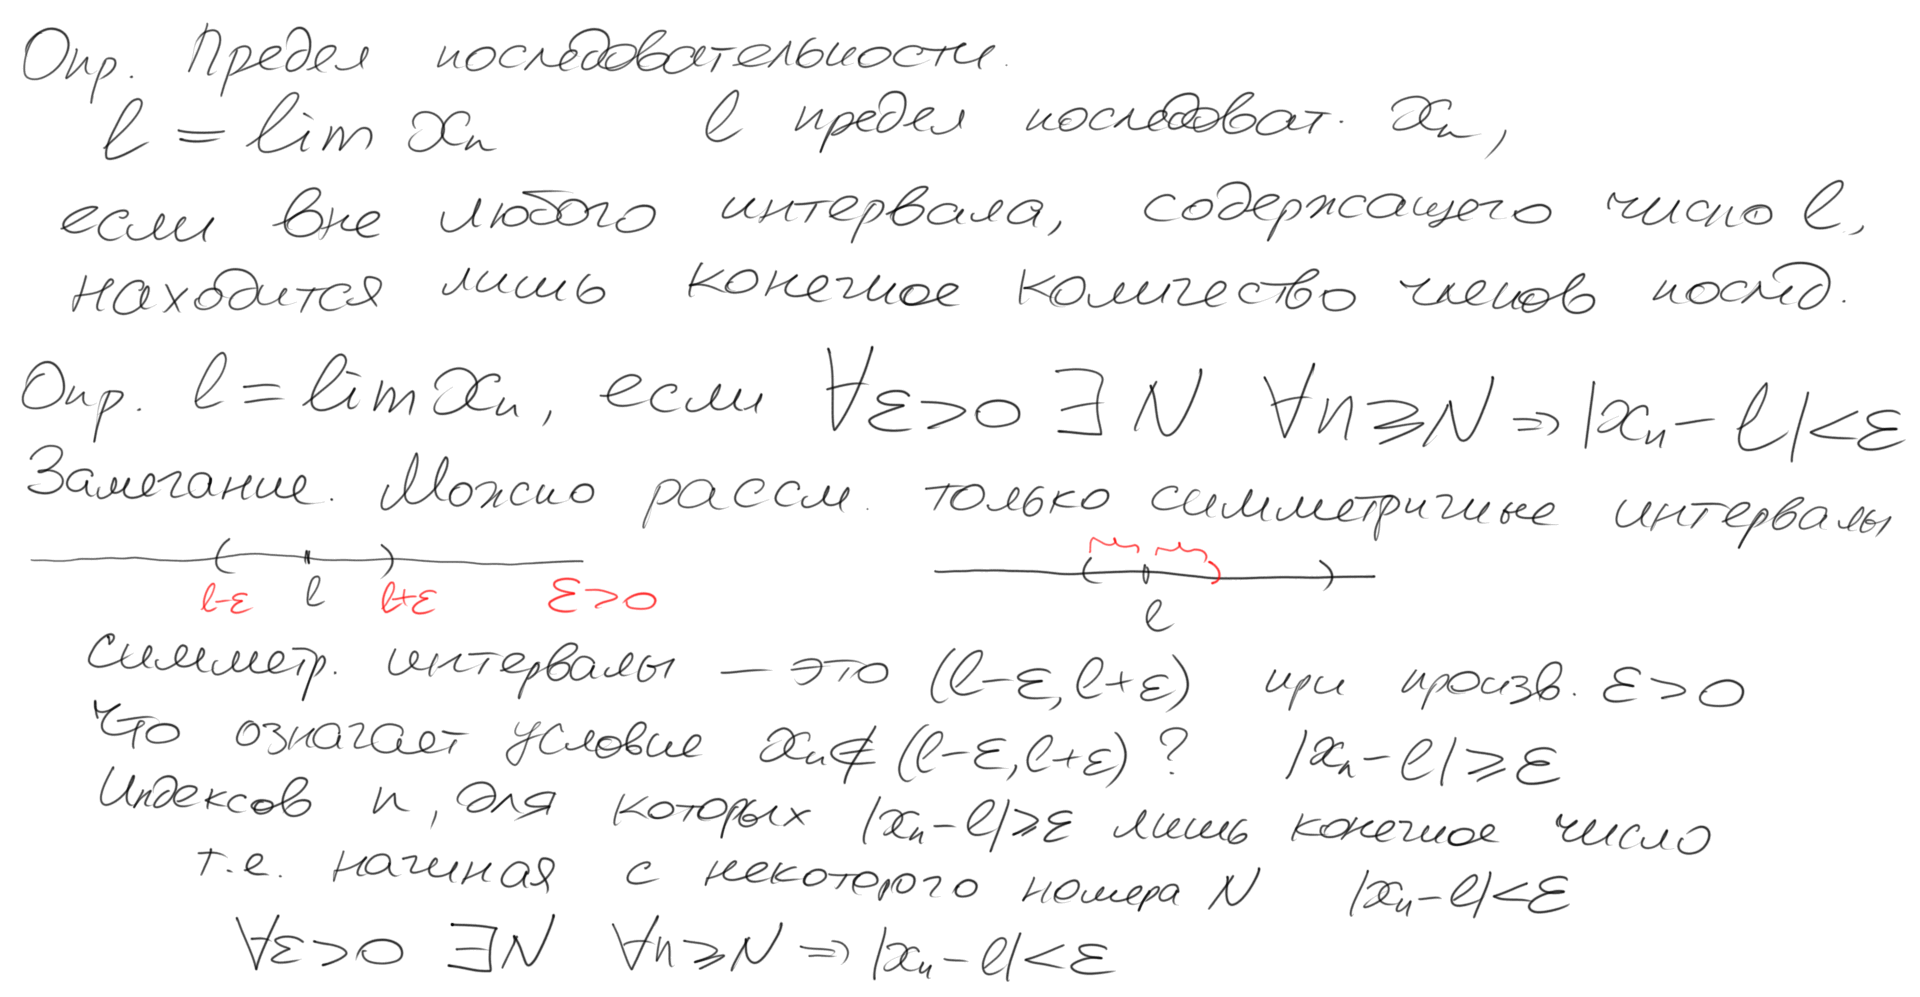 Опр. Предел последовательности.
l = lim xₙ l предел последоват. xₙ,
если вне любого интервала, содержащего число l,
находится лишь конечное количество членов послед.
Опр. l = lim xₙ, если ∀ε>0 ∃N ∀n⩾N ⇒ |xₙ - l|<ε
Замечание. Можно рассм. только симметричные интервалы
l-ε l l+ε ε>0 l
Симметр. интервалы — это (l-ε, l+ε) при произв. ε>0
Что означает условие xₙ∉(l-ε, l+ε)? |xₙ - l|⩾ε
Индексов n, для которых |xₙ - l|⩾ε лишь конечное число
т.е. начиная с некоторого номера N |xₙ - l|<ε
∀ε>0 ∃N ∀n⩾N ⇒ |xₙ - l|<ε